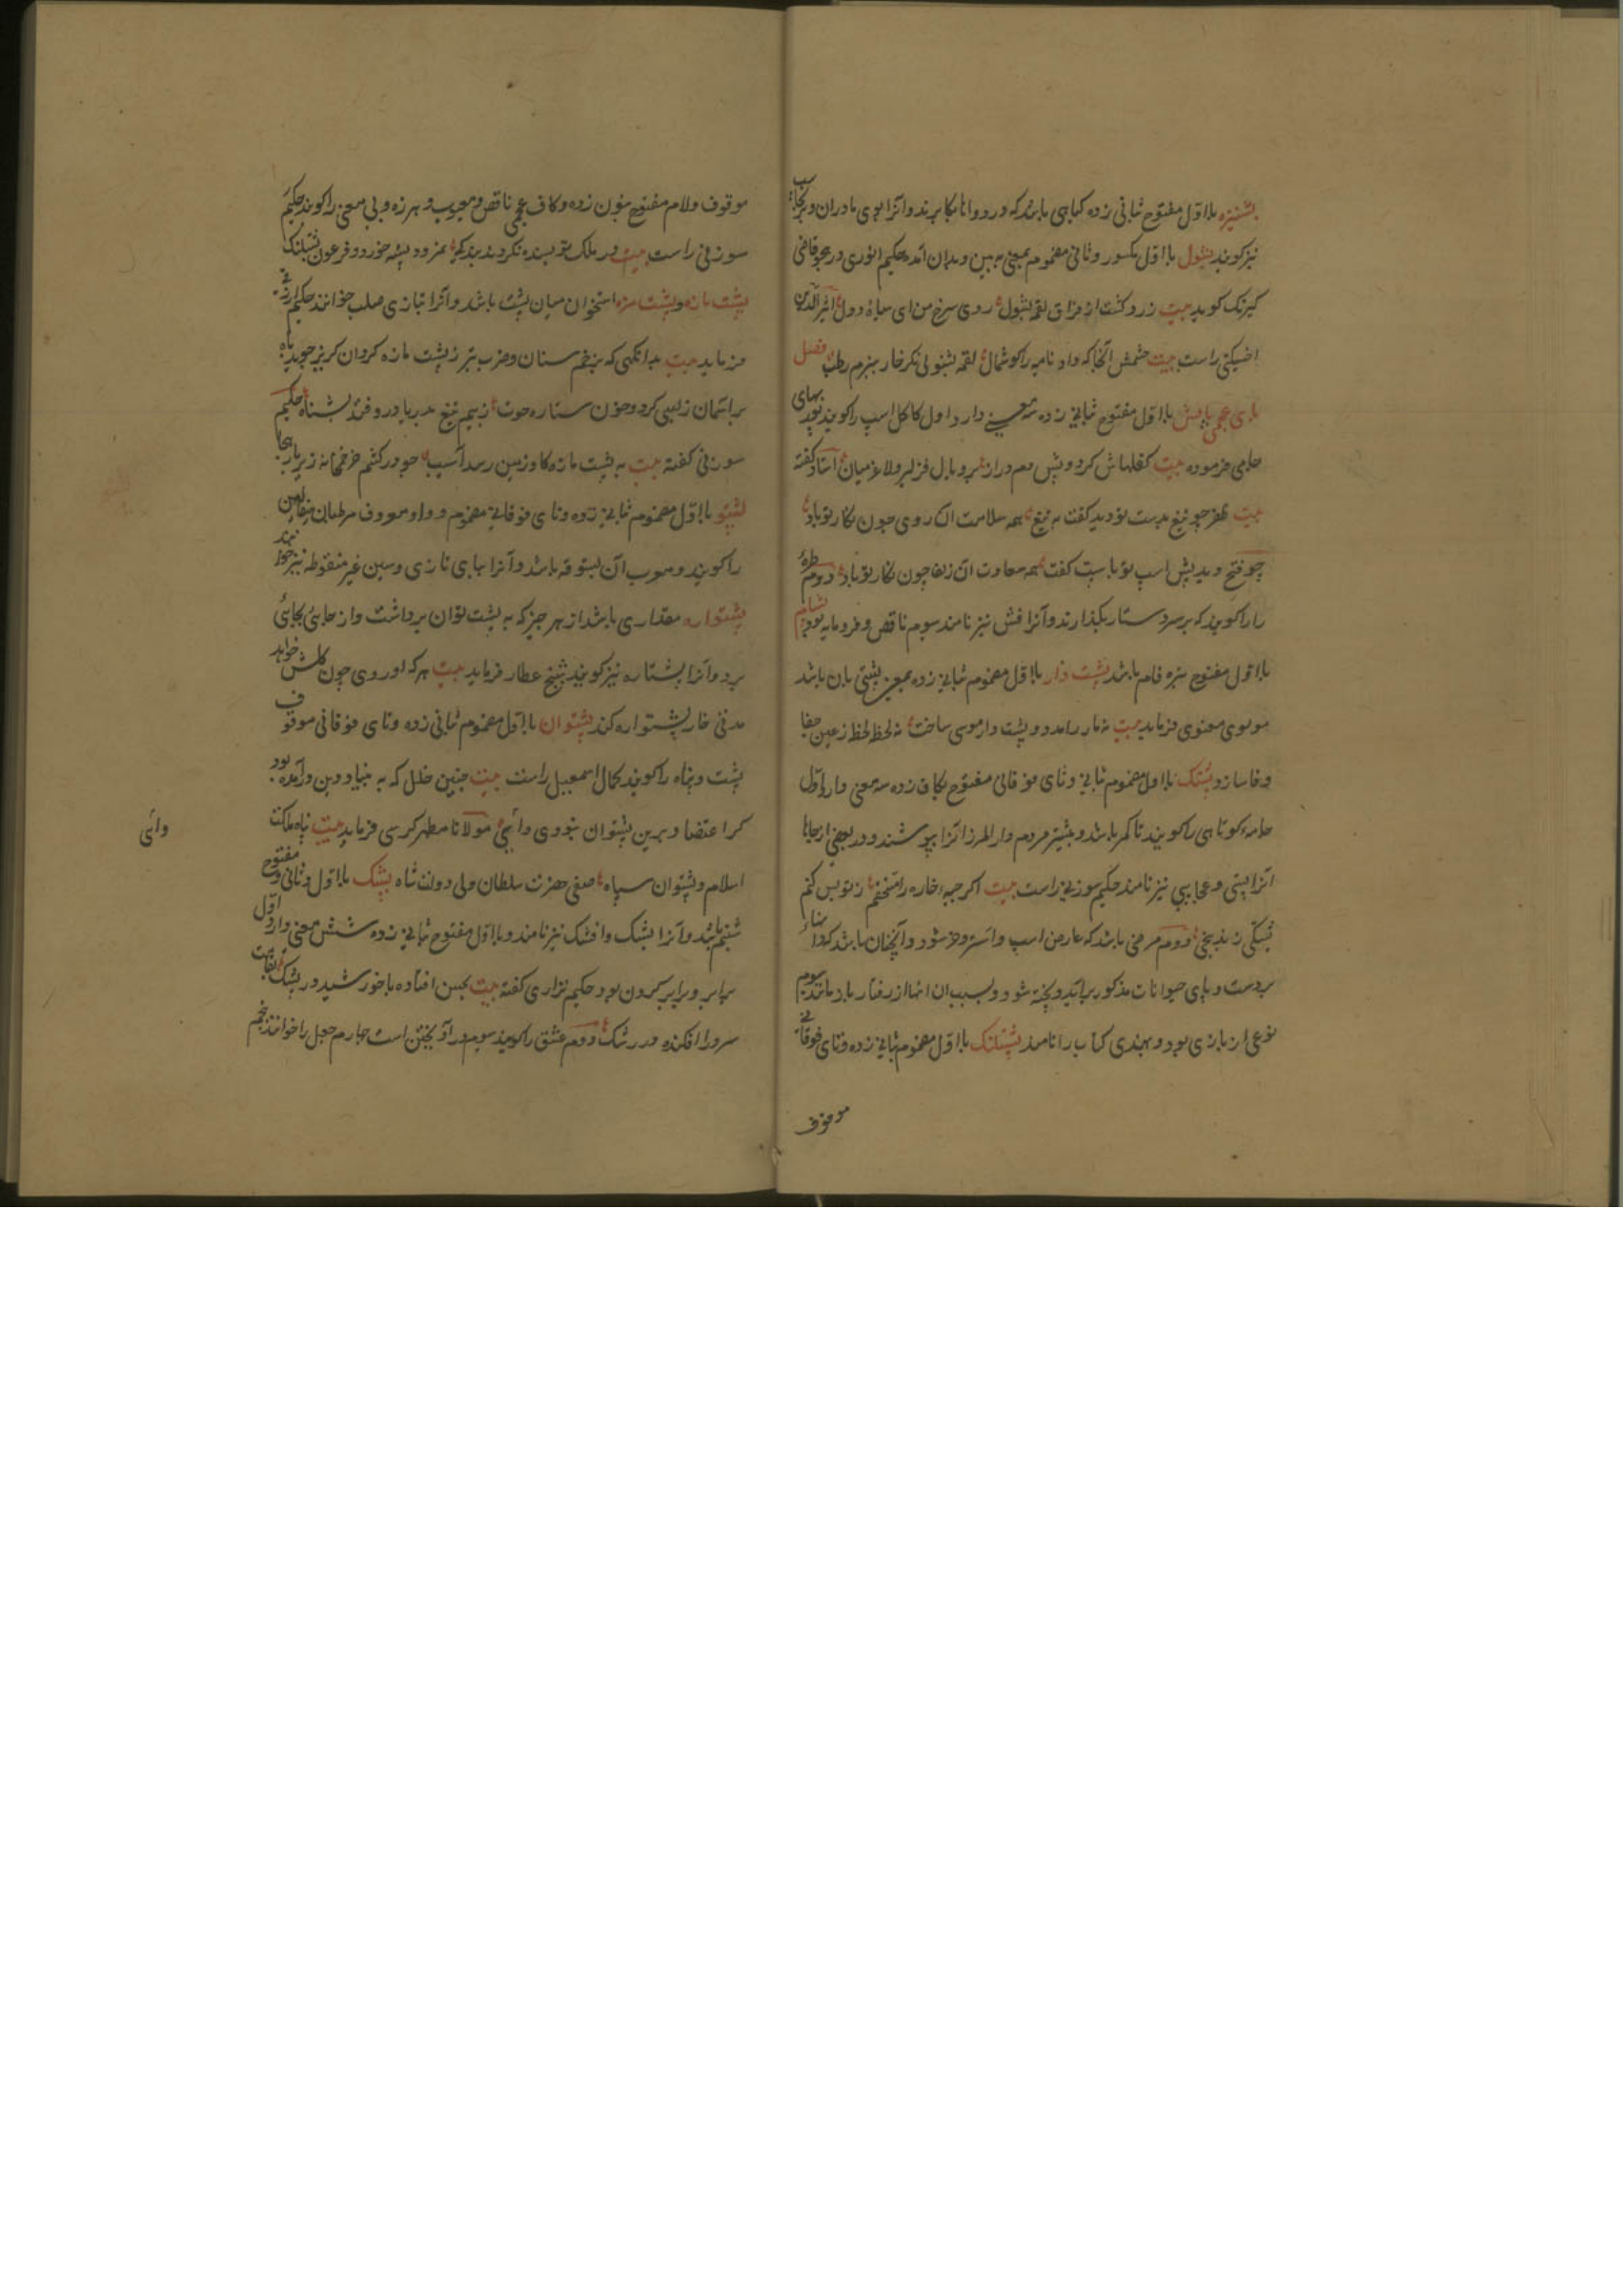 بشنیزه بااول مفتوح بثانی زده کیاهی باشد که در دواها بکار برند و آنرا بوی مادران و برنجاسب
نیز کویند بشول بااول مکسور و ثانی مضموم بمعنی ببین و بدان آمده حکیم انوری در هجو قاضی
کیرنک کوید بیت زرد کشت از فراق لقمه بشول روی سرخ من ای سیاه دول اثیرالدین
اخسیکتی راست بیت خشمش آنجا که داد نامیه را کوشمال لقمه بشنولی نکر خار بنرم رطب فصل
بای عجمی پش بااول مفتوح بثانی زده سه معنی دارد اول کاکل اسپ را کویند نور بهای
جامی فرموده بیت کفلهاش کرد و پش و دم دراز برو یال فربه و لاغر میان استاد کفته
بیت ظفر چو تیغ بدست تو دید کفت به تیغ همه سلامت آن روی چون نکار تو باد
چو فتح دید پش اسپ تو باسپ کفت همه سعادت آن زلف چون نکار تو باد دوم طره
را را کویند که بر سر دستار بکذارند و آنرا فش نیز نامند سوم ناقص و فرومایه بود پشام
بااول مفتوح تیره فام باشد پشت دار بااول مضموم بثانی زده بمعنی پشتی بان باشد
مولوی معنوی فرماید بیت نه مار را مدد و پشت دار موسی ساخت نه لحظه لحظه ز عین جفا
وفا سازد پشتک بااول مضموم ثانی و تای فوقانی مفتوح بکاف زده سه معنی دارد اول
جامه کوتاهی را کویند تا کمر باشد و بیشتر مردم دارالمرز آنرا پوشند و در بعضی از جاها
آنرا پشتی و عجایبی نیز نامند حکیم سوزنی راست بیت اکر جبه خاره را مستحقم ز تو بس کنم
پشتکی زندنیجی دوم مرضی باشد که عارض اسپ و استر و خر شود و آنچنان باشد که دانها
بر دست و پای حیوانات مذکور برآید و پخته شود و بسبب آن آنها از رفتار باز مانند سوم
نوعی از بازی بود و بهندی کباب را نامند پشتلنک بااول مضموم بثانی زده و تای فوقانی
موقوف
موقوف و لام مفتوح بنون زده و کاف عجمی ناقص و معیوب و هرزه و بی معنی را کویند حکیم
سوزنی راست بیت در ملک تو بسنده نکردند بندکی نمرود پشه خورد و فرعون پشتلنک
پشت مازه و پشت مزه استخوان میان پشت باشد و آنرا بتازی صلب خوانند حکیم ازرقی
فرماید بیت بدانکهی که بزخم سنان و ضرب تبر ز پشت مازه کردان کریز جوید راه
بر آسمان زلبی کرد و خون ستاره حوت ز بیم تیغ بدریا درو فتد بشناه حکیم
سوزنی کفته بیت به پشت مازه کاو زمین رسد آسیب چو در کشم خر خمخانه زیر بار هجا
پشتو بااول مضموم بثانی زده و تای فوقانی مضموم و واو معروف مرطبان سفالین
را کویند و معرب آن بستوقه باشد و آنرا ببای تازی و سین غیر منقوطه نیز خوانند
پشتواره مقداری باشد از هر چیز که به پشت توان برداشت و از جایی بجایی
برد و آنرا پشتاره نیز کویند شیخ عطار فرماید بیت هر که او روی چون کلش خواهد
مدتی خار پشتواره کند پشتوان بااول مضموم بثانی زده و تای فوقانی موقوف
پشت و پناه را کویند کمال اسمعیل راست بیت چنین خلل که به بنیاد دین درآمده بود
کرا عتضاد برین پشتوان نبودی وائی مولانا مطهر کرسی فرماید بیت پناه ملکت
اسلام و پشتوان سپاه صفی حضرت سلطان ولی دولت شاه پشک بااول و ثانی مفتوح
شبنم باشد و آنرا بشک و افشک نیز نامند و بااول مفتوح بثانی زده شش معنی دارد اول
برابر و برابر کردن بود حکیم نزاری کفته بیت بحسن افتاده با خورشید در پشک نقابت
سرو را افکنده در رشک دوم عشق را کویند سوم در آویختن است چهارم جعل را خوانند پنجم
وائی